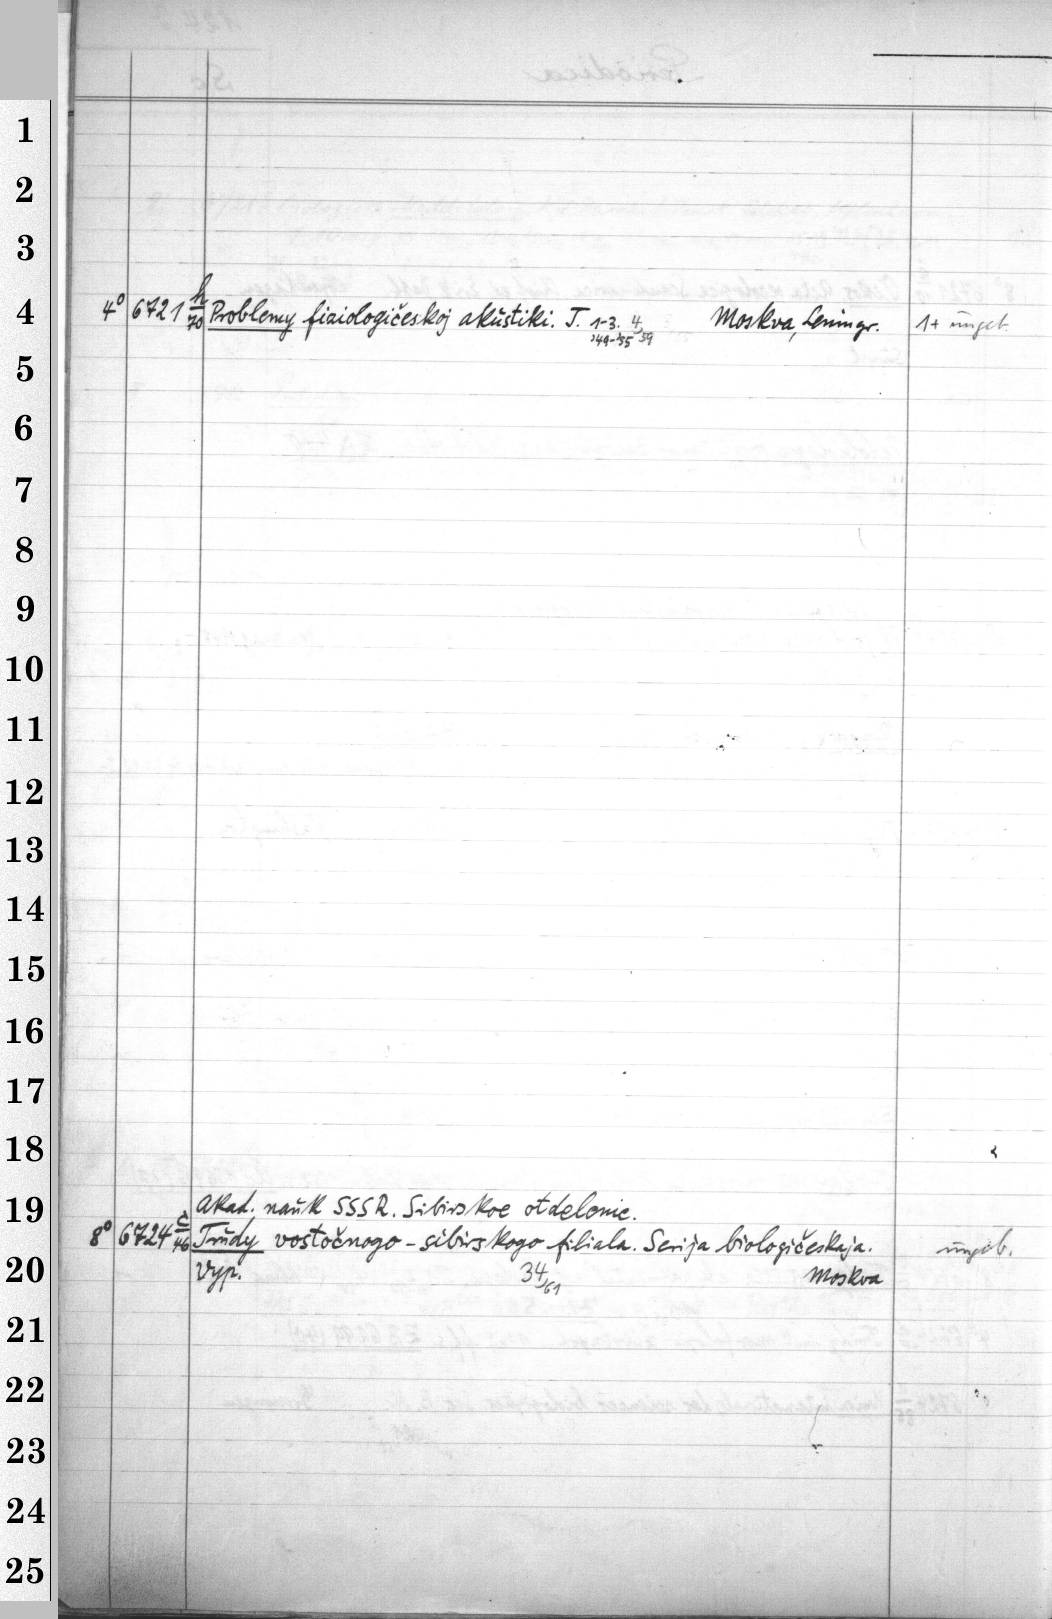 1
2
3
4
4° 6721 h/70 Problemy fiziologičeskoj akustiki. T. 1-3. 4, Moskva, Leningr. 1+ ungeb.
'49-'55 59
5
6
7
8
9
10
11
12
13
14
15
16
17
18
19
Akad. nauk SSSR. Sibirskoe otdelenie.
8° 6724 c/46 Trudy vostočnogo-sibirskogo filiala. Serija biologičeskaja. ungeb.
20
Vyp. 34,61 Moskva
21
22
23
24
25